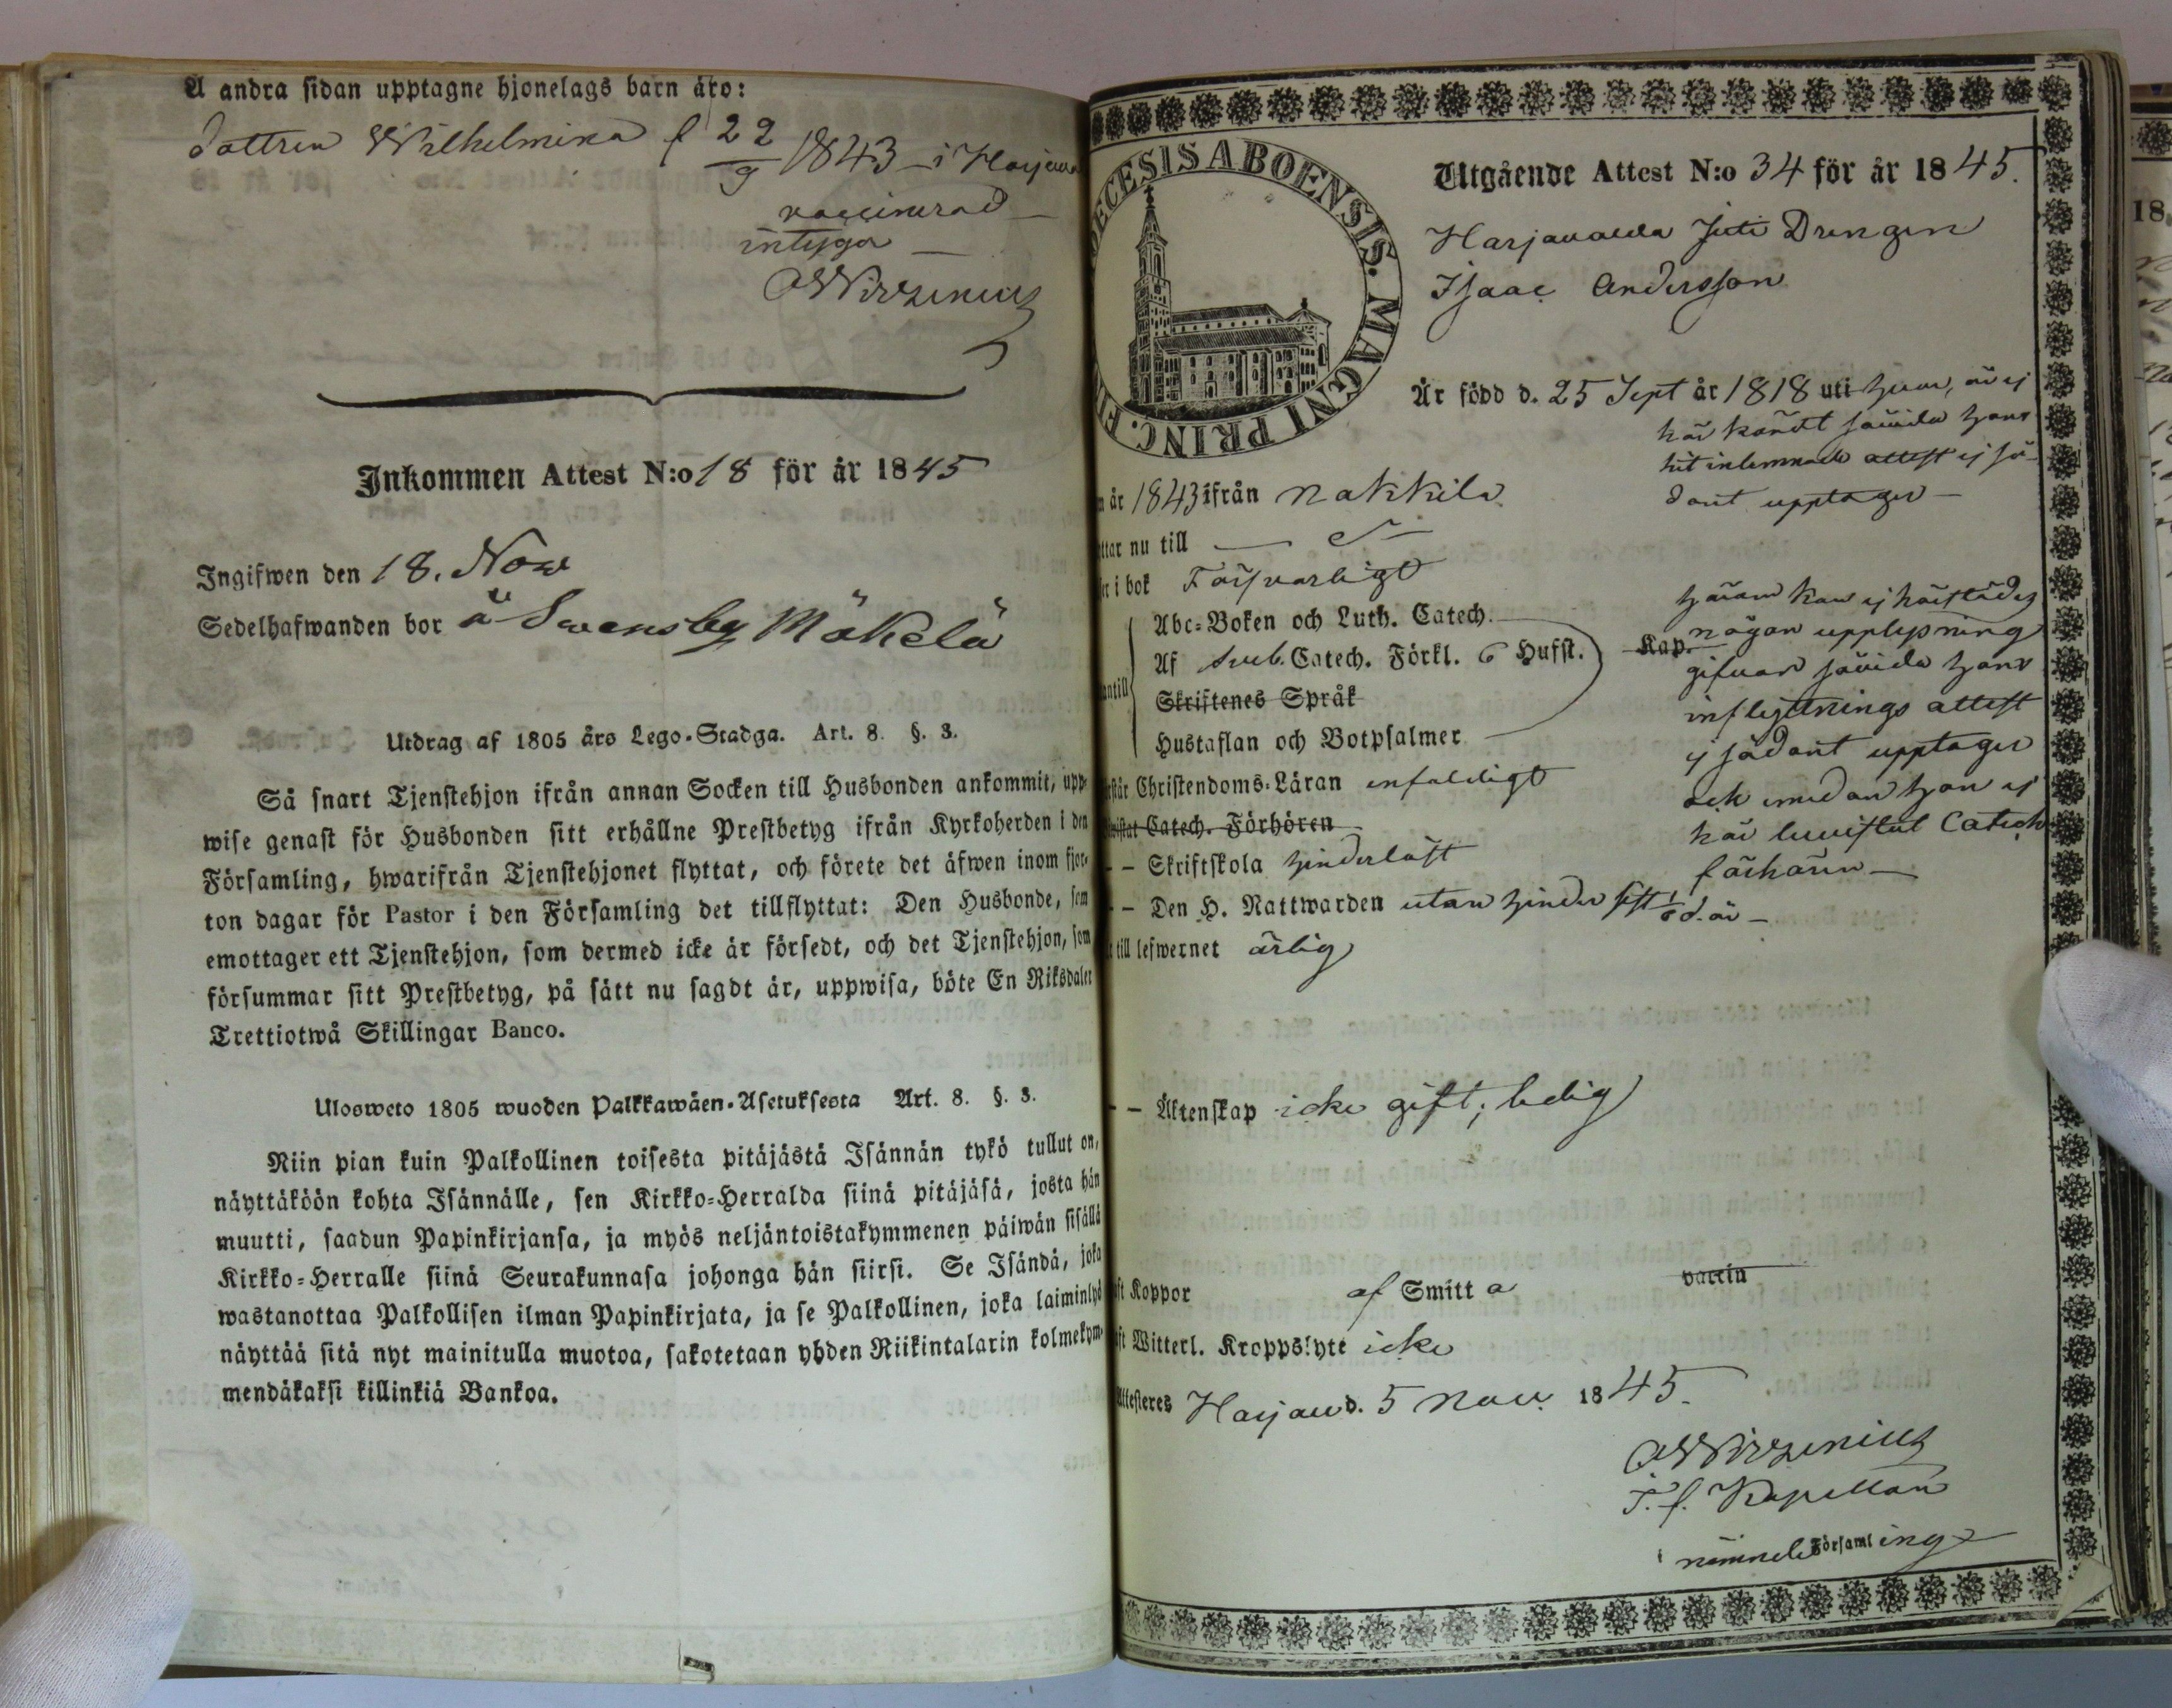 A andra sidan upptagne hjonelags barn äro:
dottren Wilhelmina f 22/9 1843 - i Harjaval
vaccinerad -
intygar -
Inkommen Attest N:o 18 för år 1845
Ingifwen den 18. Nov
Sedelhafwanden bor å Svensby Mäkelä
Utdrag af 1805 års Lego-Stadga. Art. 8. §. 3.
Så snart Tjenstehjon ifrån annan Socken till Husbonden ankommit, upp-
wise genast för Husbonden sitt erhållne Prestbetyg ifrån Kyrkoherden i den
Församling, hwarifrån Tjenstehjonet flyttat, och förete det äfwen inom fjor-
ton dagar för Pastor i den Församling det tillflyttat: Den Husbonde, som
emottager ett Tjenstehjon, som dermed icke är försedt, och det Tjenstehjon, som
försummar sitt Prestbetyg, på sätt nu sagdt är, uppwisa, böte En Riksdaler
Trettiotwå Skillingar Banco.
Ulosweto 1805 wuoden Palkkawäen-Asetuksesta Art. 8. §. 3.
Niin pian kuin Palkollinen toisesta pitäjästä Isännän tykö tullut on,
näyttäköön kohta Isännälle, sen Kirkko-Herralda siinä pitäjäsä, josta hän
muutti, saadun Papinkirjansa, ja myös neljäntoistakymmenen päiwän sisällä
Kirkko-Herralle siinä Seurakunnasa johonga hän siirsi. Se Isändä, joka
wastanottaa Palkollisen ilman Papinkirjata, ja se Palkollinen, joka laiminlyö
näyttää sitä nyt mainitulla muotoa, sakotetaan yhden Riikintalarin kolmekym-
mendäkaksi killinkiä Bankoa.
ECESIS ABOENSIS. MAGNI PRINC. FI
Utgående Attest N:o 34 för år 1845.
Harjavalda Juti Drengen
Isaac Andersson
Är född d. 25 Sept år 1818 uti hvar, är ej
här kändt såvida hans
hit inlemnade attest ej så-
dant upptager -
år 1843 ifrån Nakkila
ttar nu till
i bok Försvarligt
Abc-Boken och Luth. Catech.
Af Sveb. Catech. Förkl. 6 Hufst. Kap.
antill
Skriftenes Språk
Hustaflan och Botpsalmer
härom kan ej härstädes
någon upplysning
gifvas såvida hans
inflyttnings attest
ej sådant upptager
och emedan han ej
här bevistat Catech
förhören -
står Christendoms-Läran enfaldigt
istat Catech. Förhören
- - Skriftskola hinderlöst
- - Den H. Nattwarden utan hinder sist
till lefwernet ärlig
- - Äktenskap icke gift; ledig
ft Koppor af Smitta vaccin
ft Witterl. Kroppslyte icke
Attesteres Harjav d. 5 Nov. 1845.
T. f. Kapellan
i nämnde Församling
18